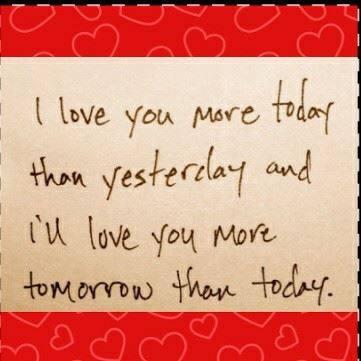 I love you more today
than yesterday and
i'll love you more
tomorrow than today.